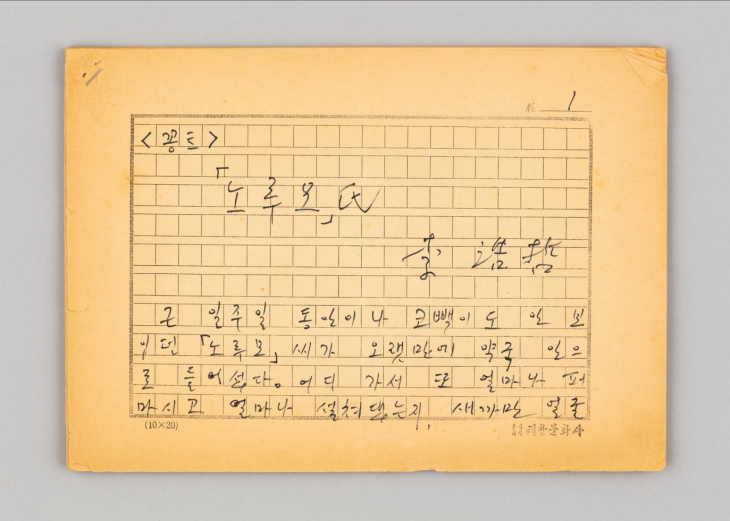 No. 1
<꽁트>
「노루모」氏
李浩哲
근 일주일 동안이나 코빽이도 안 보
이던 「노루모」씨가 오랫만에 약국 안으
로 들어섰다. 어디 가서 또 얼마나 퍼
마시고 얼마나 설쳐댔는지, 새까만 얼굴
(10×20)
문화사